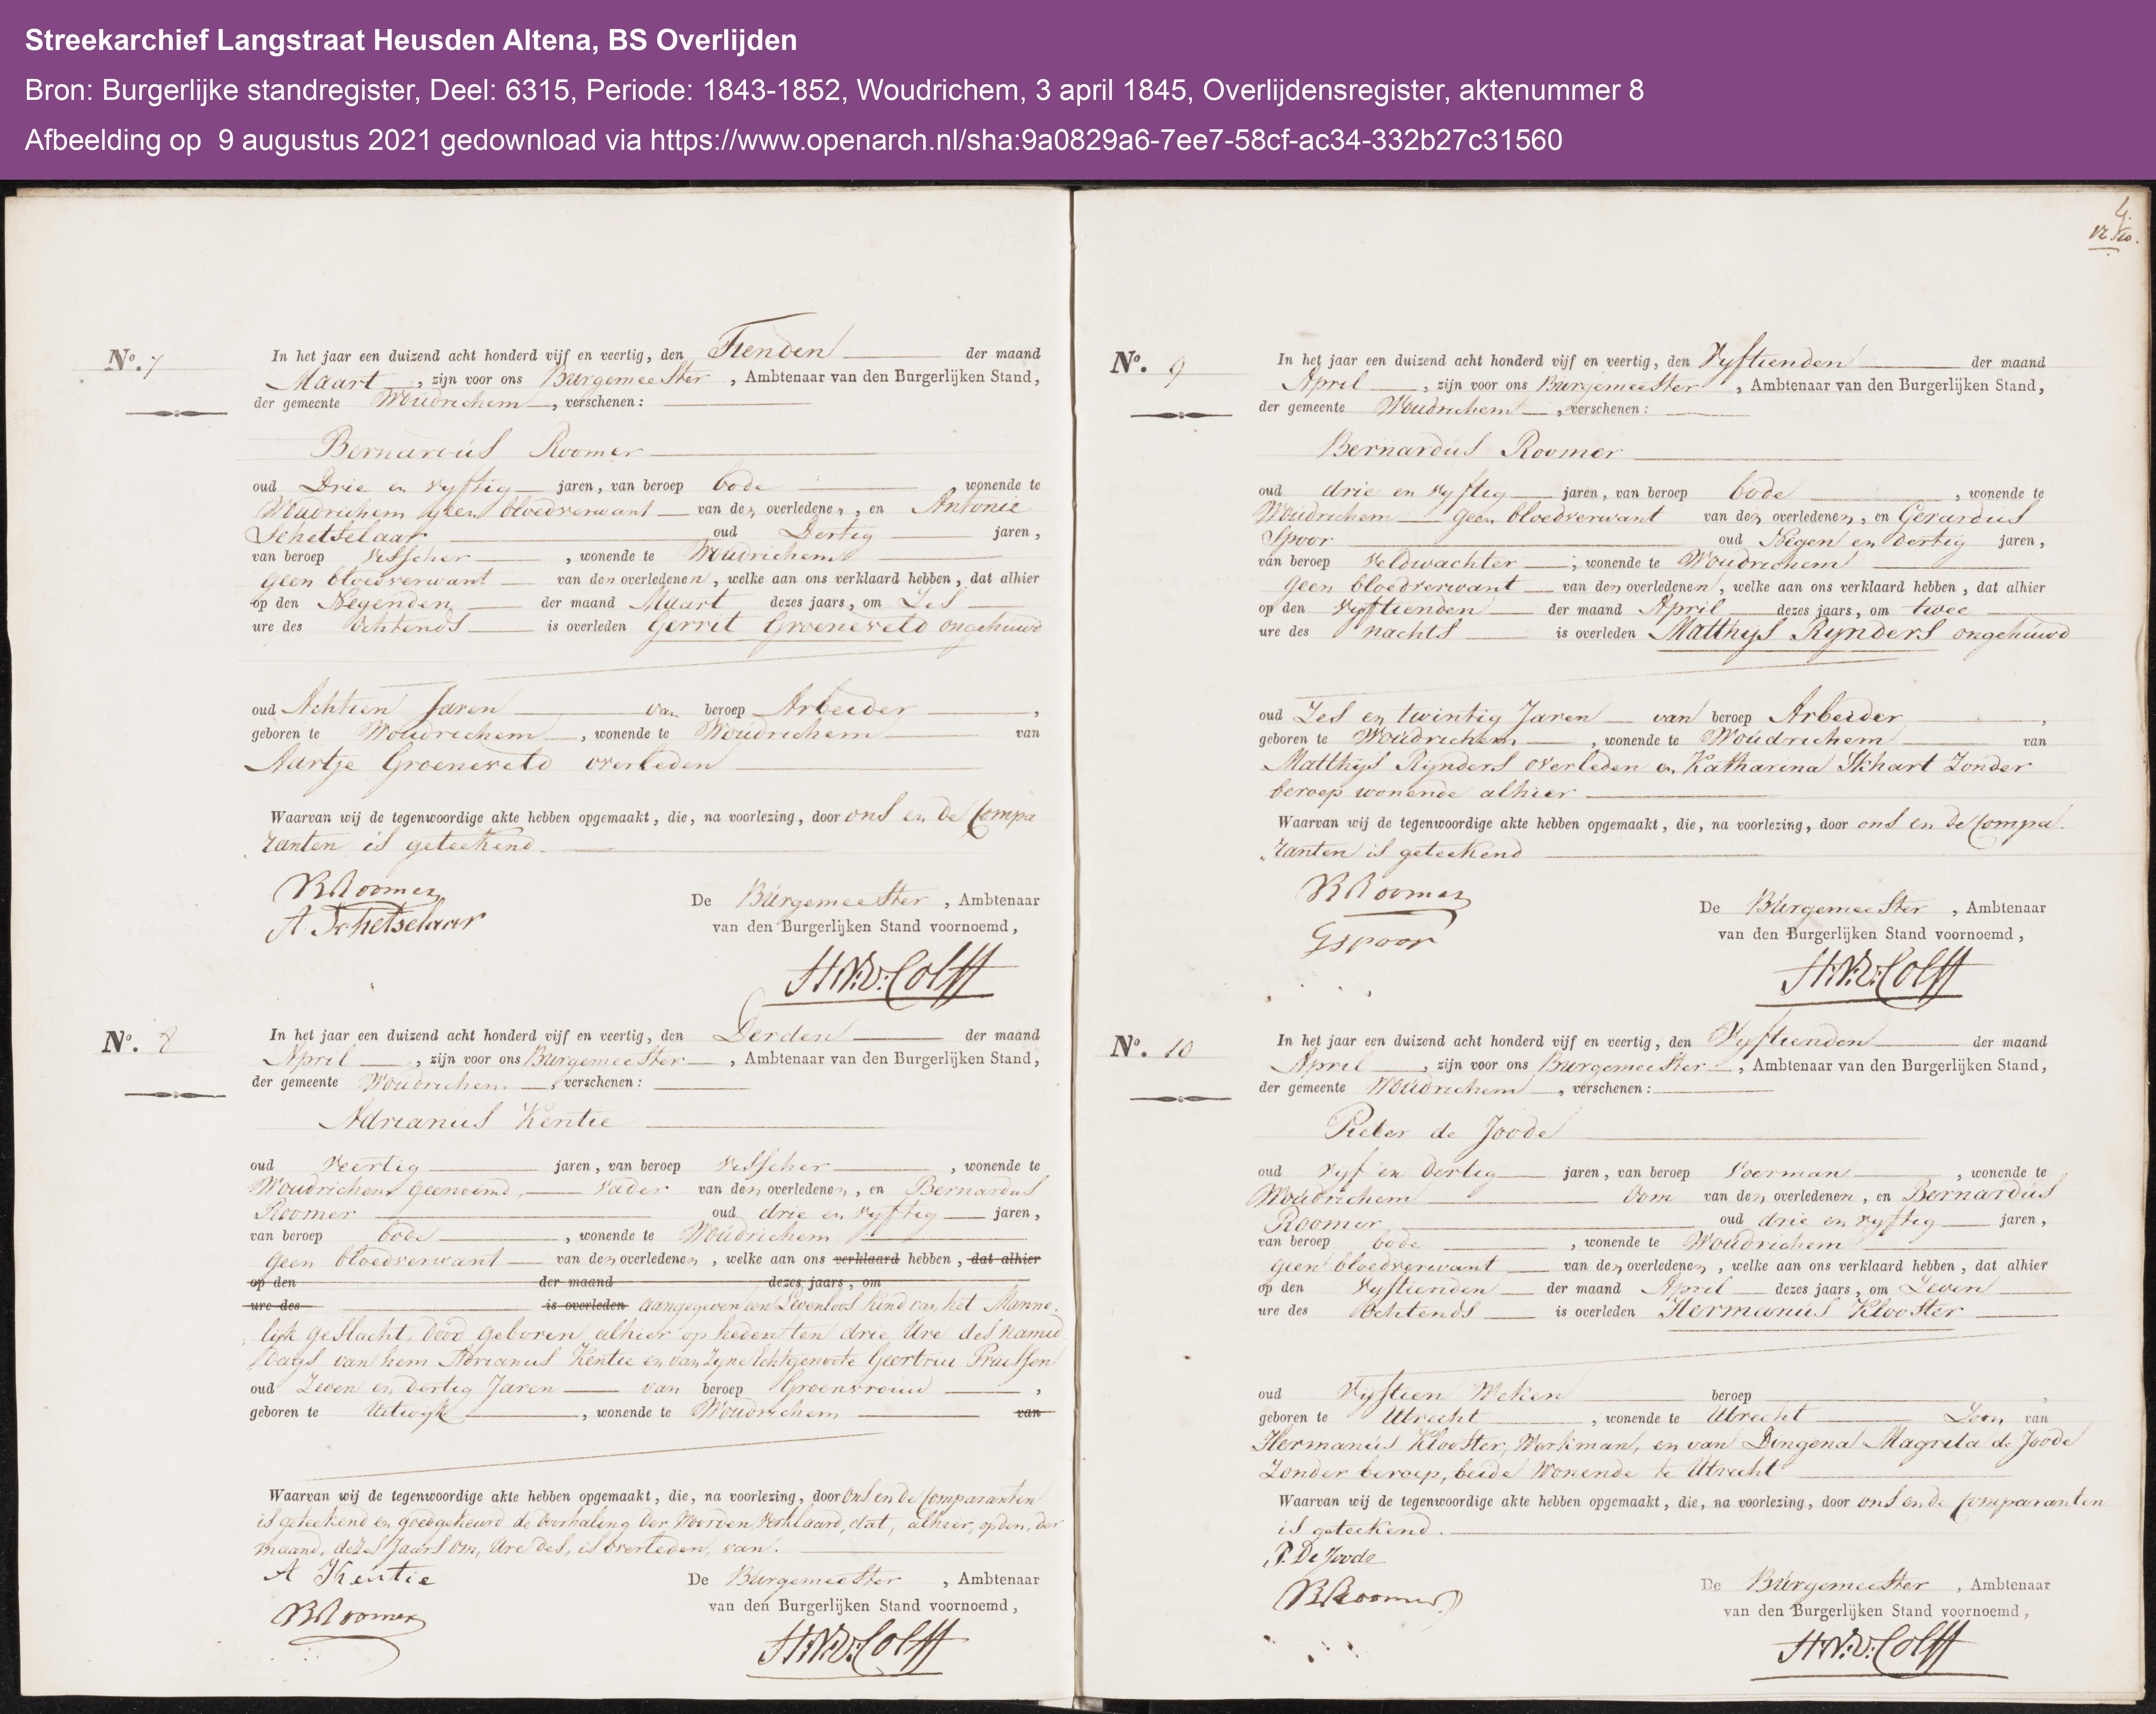 Streekarchief Langstraat Heusden Altena, BS Overlijden
Bron: Burgerlijke standregister, Deel: 6315, Periode: 1843-1852, Woudrichem, 3 april 1845, Overlijdensregister, aktenummer 8
Afbeelding op 9 augustus 2021 gedownload via https://www.openarch.nl/sha:9a0829a6-7ee7-58cf-ac34-332b27c31560
No. 7
In het jaar een duizend acht honderd vijf en veertig, den Tienden der maand
Maart, zijn voor ons Burgemeester, Ambtenaar van den Burgerlijken Stand,
der gemeente Woudrichem, verschenen:
Bernardus Roomer
oud Drie en vyftig jaren, van beroep bode, wonende te
Woudrichem geen bloedverwant van den overledenen, en Antonie
Schetselaar oud Dertig jaren,
van beroep visscher, wonende te Woudrichem
geen bloedverwant van den overledenen, welke aan ons verklaard hebben, dat alhier
op den Negenden der maand Maart dezes jaars, om Zes
ure des ochtends is overleden Gerrit Groeneveld ongehuwd
oud Achtien Jaren van beroep Arbeider,
geboren te Woudrichem, wonende te Woudrichem van
Aartje Groeneveld overleden
Waarvan wij de tegenwoordige akte hebben opgemaakt, die, na voorlezing, door ons en de Compa
ranten is geteekend.
BRoomer
A Schetselaar
De Burgemeester, Ambtenaar
van den Burgerlijken Stand voornoemd,
No. 8
In het jaar een duizend acht honderd vijf en veertig, den Derden der maand
April, zijn voor ons Burgemeester, Ambtenaar van den Burgerlijken Stand,
der gemeente Woudrichem, verschenen:
Adrianus Kentie
oud veertig jaren, van beroep visscher, wonende te
Woudrichem genoemd, vader van den overledenen, en Bernardus
Roomer oud drie en vyftig jaren,
van beroep bode, wonende te Woudrichem
geen bloedverwant van den overledenen, welke aan ons verklaard hebben, dat alhier
op den der maand dezes jaars, om
ure des is overleden aangegeven een Levenloos Kind van het Manne
lyk geslacht, dood geboren alhier op heden ten drie Ure des namid
dags van hem Adrianus Kentie en van Zyne Echtgenoote Geertrui
oud Zeven en dertig Jaren van beroep Groenvrouw,
geboren te Uitwyk, wonende te Woudrichem van
Waarvan wij de tegenwoordige akte hebben opgemaakt, die, na voorlezing, door Ons en de Comparanten
is geteekend en goedgekeurd de doorhaling der Woorden, verklaard, dat, alhier, op den, der
maand, dezes Jaars om, Ure des, is overleden, van.
A Kentie
BRoomer
De Burgemeester, Ambtenaar
van den Burgerlijken Stand voornoemd,
4
No. 9
In het jaar een duizend acht honderd vijf en veertig, den Vyftienden der maand
April, zijn voor ons Burgemeester, Ambtenaar van den Burgerlijken Stand,
der gemeente Woudrichem, verschenen:
Bernardus Roomer
oud drie en vyftig jaren, van beroep bode, wonende te
Woudrichem geen bloedverwant van den overledenen, en Gerardus
Spoor oud Negen en dertig jaren,
van beroep veldwachter; wonende te Woudrichem
geen bloedverwant van den overledenen, welke aan ons verklaard hebben, dat alhier
op den vyftienden der maand April dezes jaars, om twee
ure des nachts is overleden Matthys Rynders ongehuwd
oud Zes en twintig Jaren van beroep Arbeider,
geboren te Woudrichem, wonende te Woudrichem van
Matthys Rynders overleden en Katharina Ikhart Zonder
beroep wonende alhier
Waarvan wij de tegenwoordige akte hebben opgemaakt, die, na voorlezing, door ons en de Compa
ranten is geteekend
BRoomer
G Spoor
De Burgemeester, Ambtenaar
van den Burgerlijken Stand voornoemd,
No. 10
In het jaar een duizend acht honderd vijf en veertig, den Vyftienden der maand
April, zijn voor ons Burgemeester, Ambtenaar van den Burgerlijken Stand,
der gemeente Woudrichem, verschenen:
Pieter de Joode
oud vyf en dertig jaren, van beroep Voerman, wonende te
Woudrichem Oom van den overledenen, en Bernardus
Roomer oud drie en vyftig jaren,
van beroep bode, wonende te Woudrichem
geen bloedverwant van den overledenen, welke aan ons verklaard hebben, dat alhier
op den vyftienden der maand April dezes jaars, om Zeven
ure des Ochtends is overleden Hermanus Klooster
oud Vyftien Weken beroep,
geboren te Utrecht, wonende te Utrecht Zoon van
Hermanus Klooster, Werkman, en van Dingena Magrita de Joode
Zonder beroep, beide Wonende te Utrecht
Waarvan wij de tegenwoordige akte hebben opgemaakt, die, na voorlezing, door ons en de Comparanten
is geteekend.
P. De Joode
BRoomer
De Burgemeester, Ambtenaar
van den Burgerlijken Stand voornoemd,